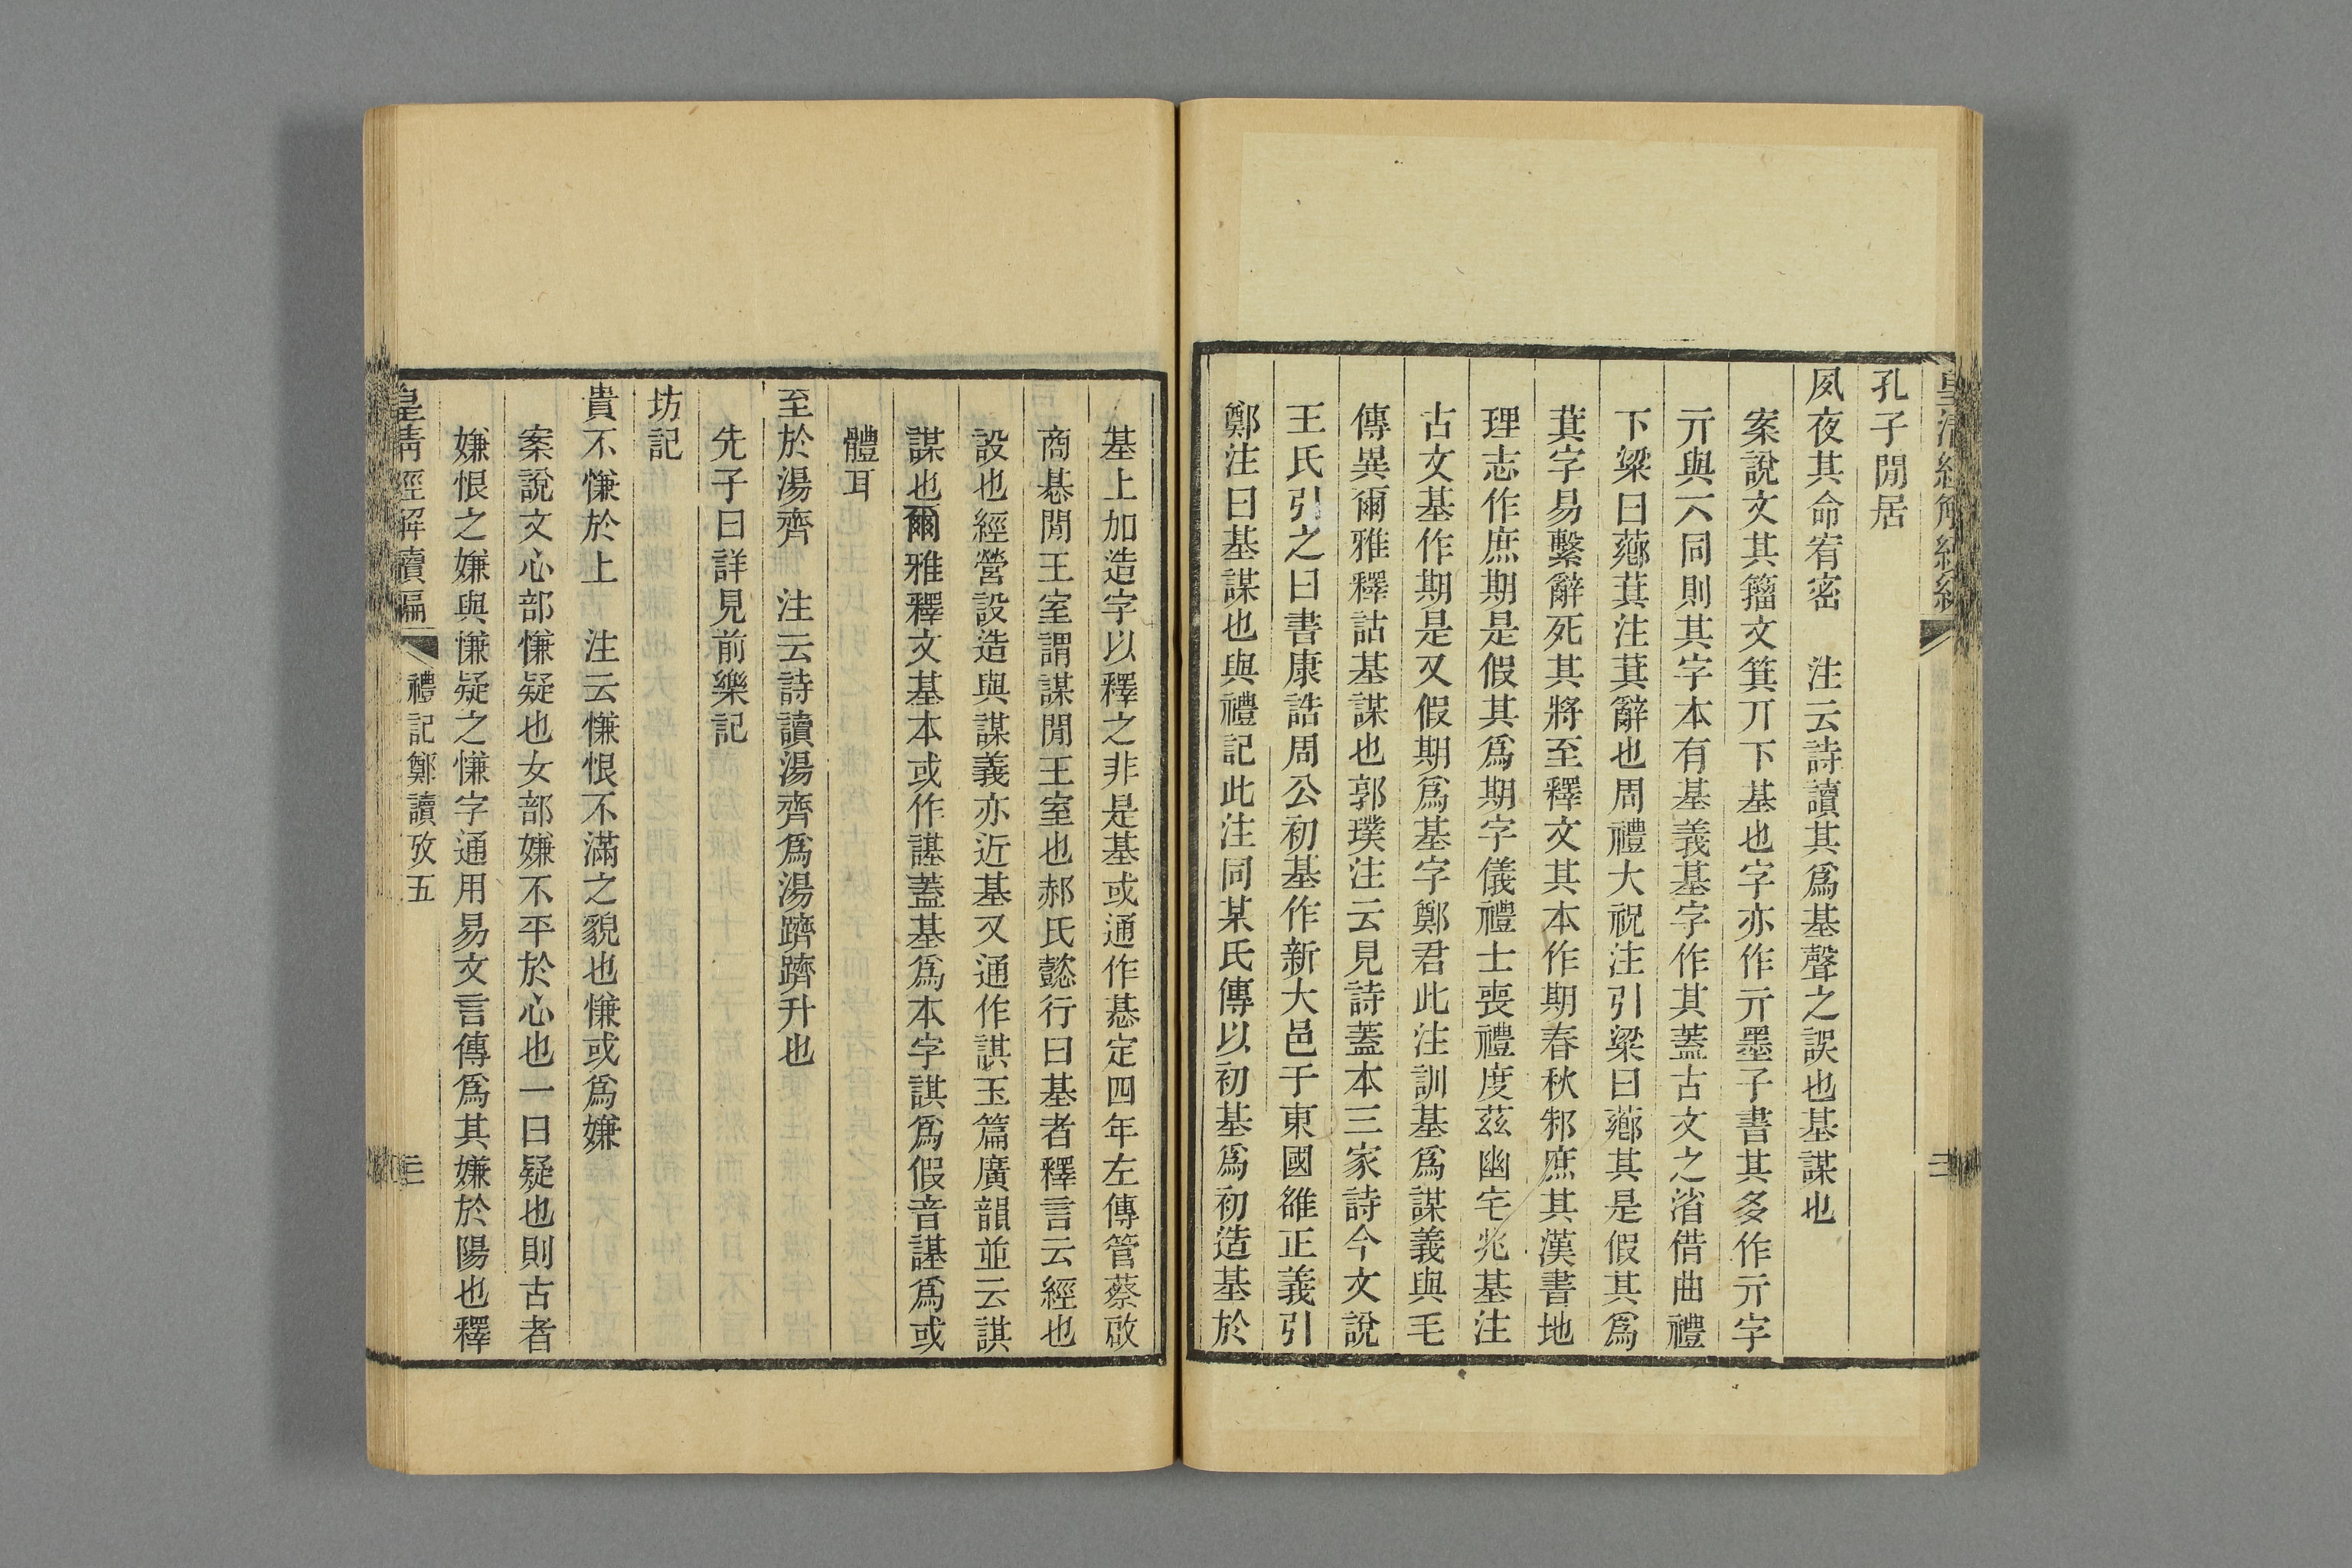 孔子閒居
夙夜其命宥密　注云詩讀其爲基聲之誤也基謀也
案說文其籀文箕丌下基也字亦作亓墨子書其多作亓字
亓與六同則其字本有基義基字作其蓋古文之渻借曲禮
下粱曰薌萁注萁辭也周禮大祝注引粱曰薌其是假其爲
萁字易繫辭死其將至釋文其本作期春秋邾庶其漢書地
理志作庶期是假其爲期字儀禮士喪禮度茲幽宅兆基注
古文基作期是又假期爲基字鄭君此注訓基爲謀義與毛
傳異爾雅釋詁基謀也郭璞注云見詩蓋本三家詩今文說
王氏引之曰書康誥周公初基作新大邑于東國雒正義引
鄭注曰基謀也與禮記此注同某氏傳以初基爲初造基於
基上加造字以釋之非是基或通作惎定四年左傳管蔡啟
商惎閒王室謂謀閒王室也郝氏懿行曰基者釋言云經也
設也經營設造與謀義亦近基又通作諆玉篇廣韻並云諆
謀也爾雅釋文基本或作諶蓋基爲本字諆爲假音諶爲或
體耳
至於湯齊　注云詩讀湯齊爲湯躋躋升也
先子曰詳見前樂記
坊記
貴不慊於上　注云慊恨不滿之貌也慊或爲嫌
案說文心部慊疑也女部嫌不平於心也一曰疑也則古者
嫌恨之嫌與慊疑之慊字通用易文言傳爲其嫌於陽也釋
皇清經解續編
禮記鄭讀攷五
三